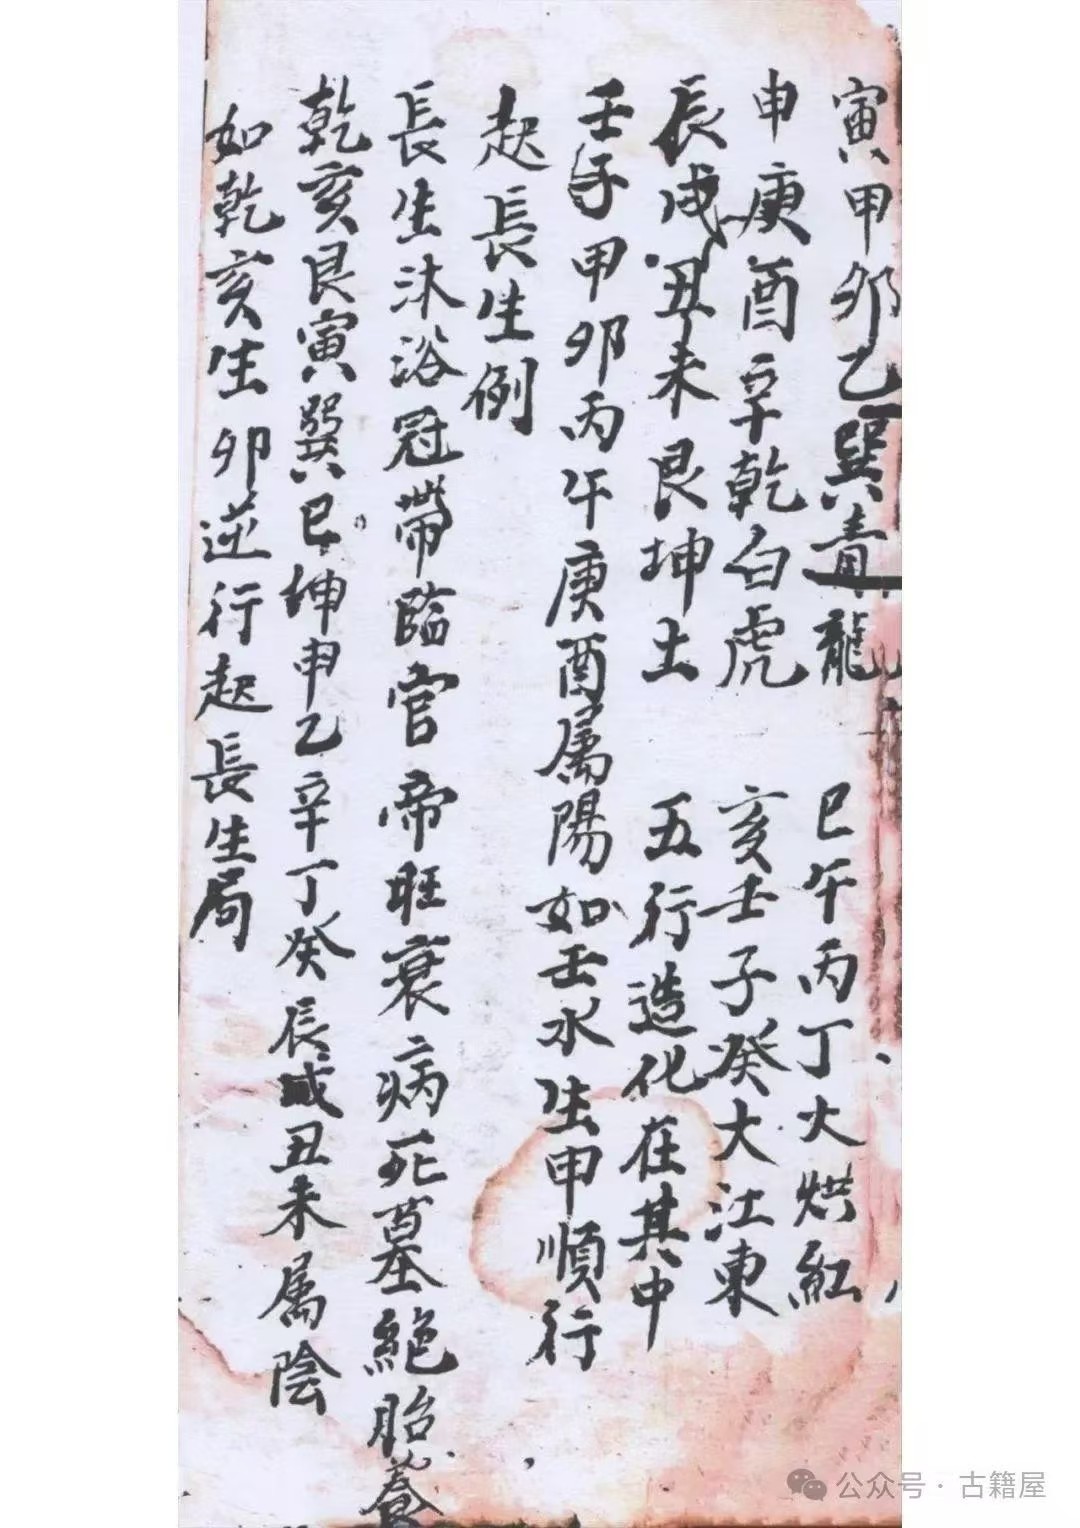 寅甲卯乙巽青龍　巳午丙丁火烘紅
申庚酉辛乾白虎　亥壬子癸大江東
辰戌丑未艮坤土　五行造化在其中
壬子甲卯丙午庚酉属陽如壬水生申順行
起長生例
長生沐浴冠帶臨官帝旺衰病死墓絕胎養
乾亥艮寅巽巳坤申乙辛丁癸辰戌丑未属陰
如乾亥生卯逆行起長生局
公众号·古籍屋